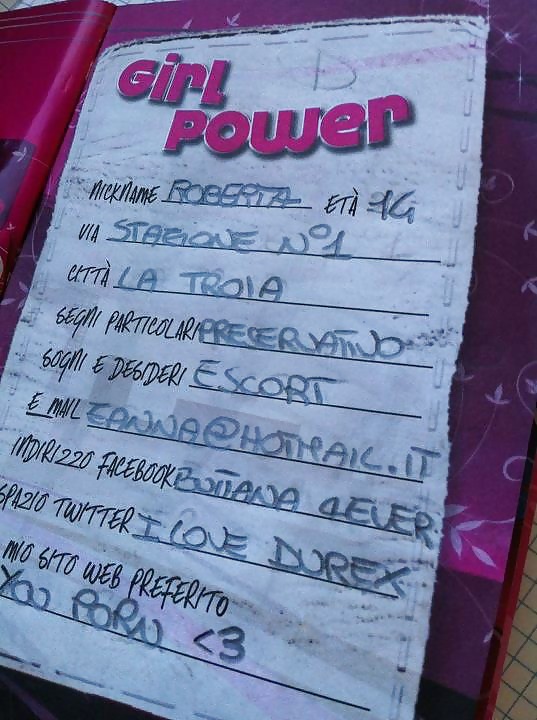 GIRL
POWER
NICKNAME ROBERTA ETÀ 14
VIA STAZIONE N°1
CITTÀ LA TROIA
SEGNI PARTICOLARI PRESERVATIVO
SOGNI E DESIDERI ESCORT
E MAIL ZANNA@HOTMAIL.IT
INDIRIZZO FACEBOOK BOTTANA 4EVER
SPAZIO TWITTER I LOVE DUREX
MIO SITO WEB PREFERITO
YOU PORN <3